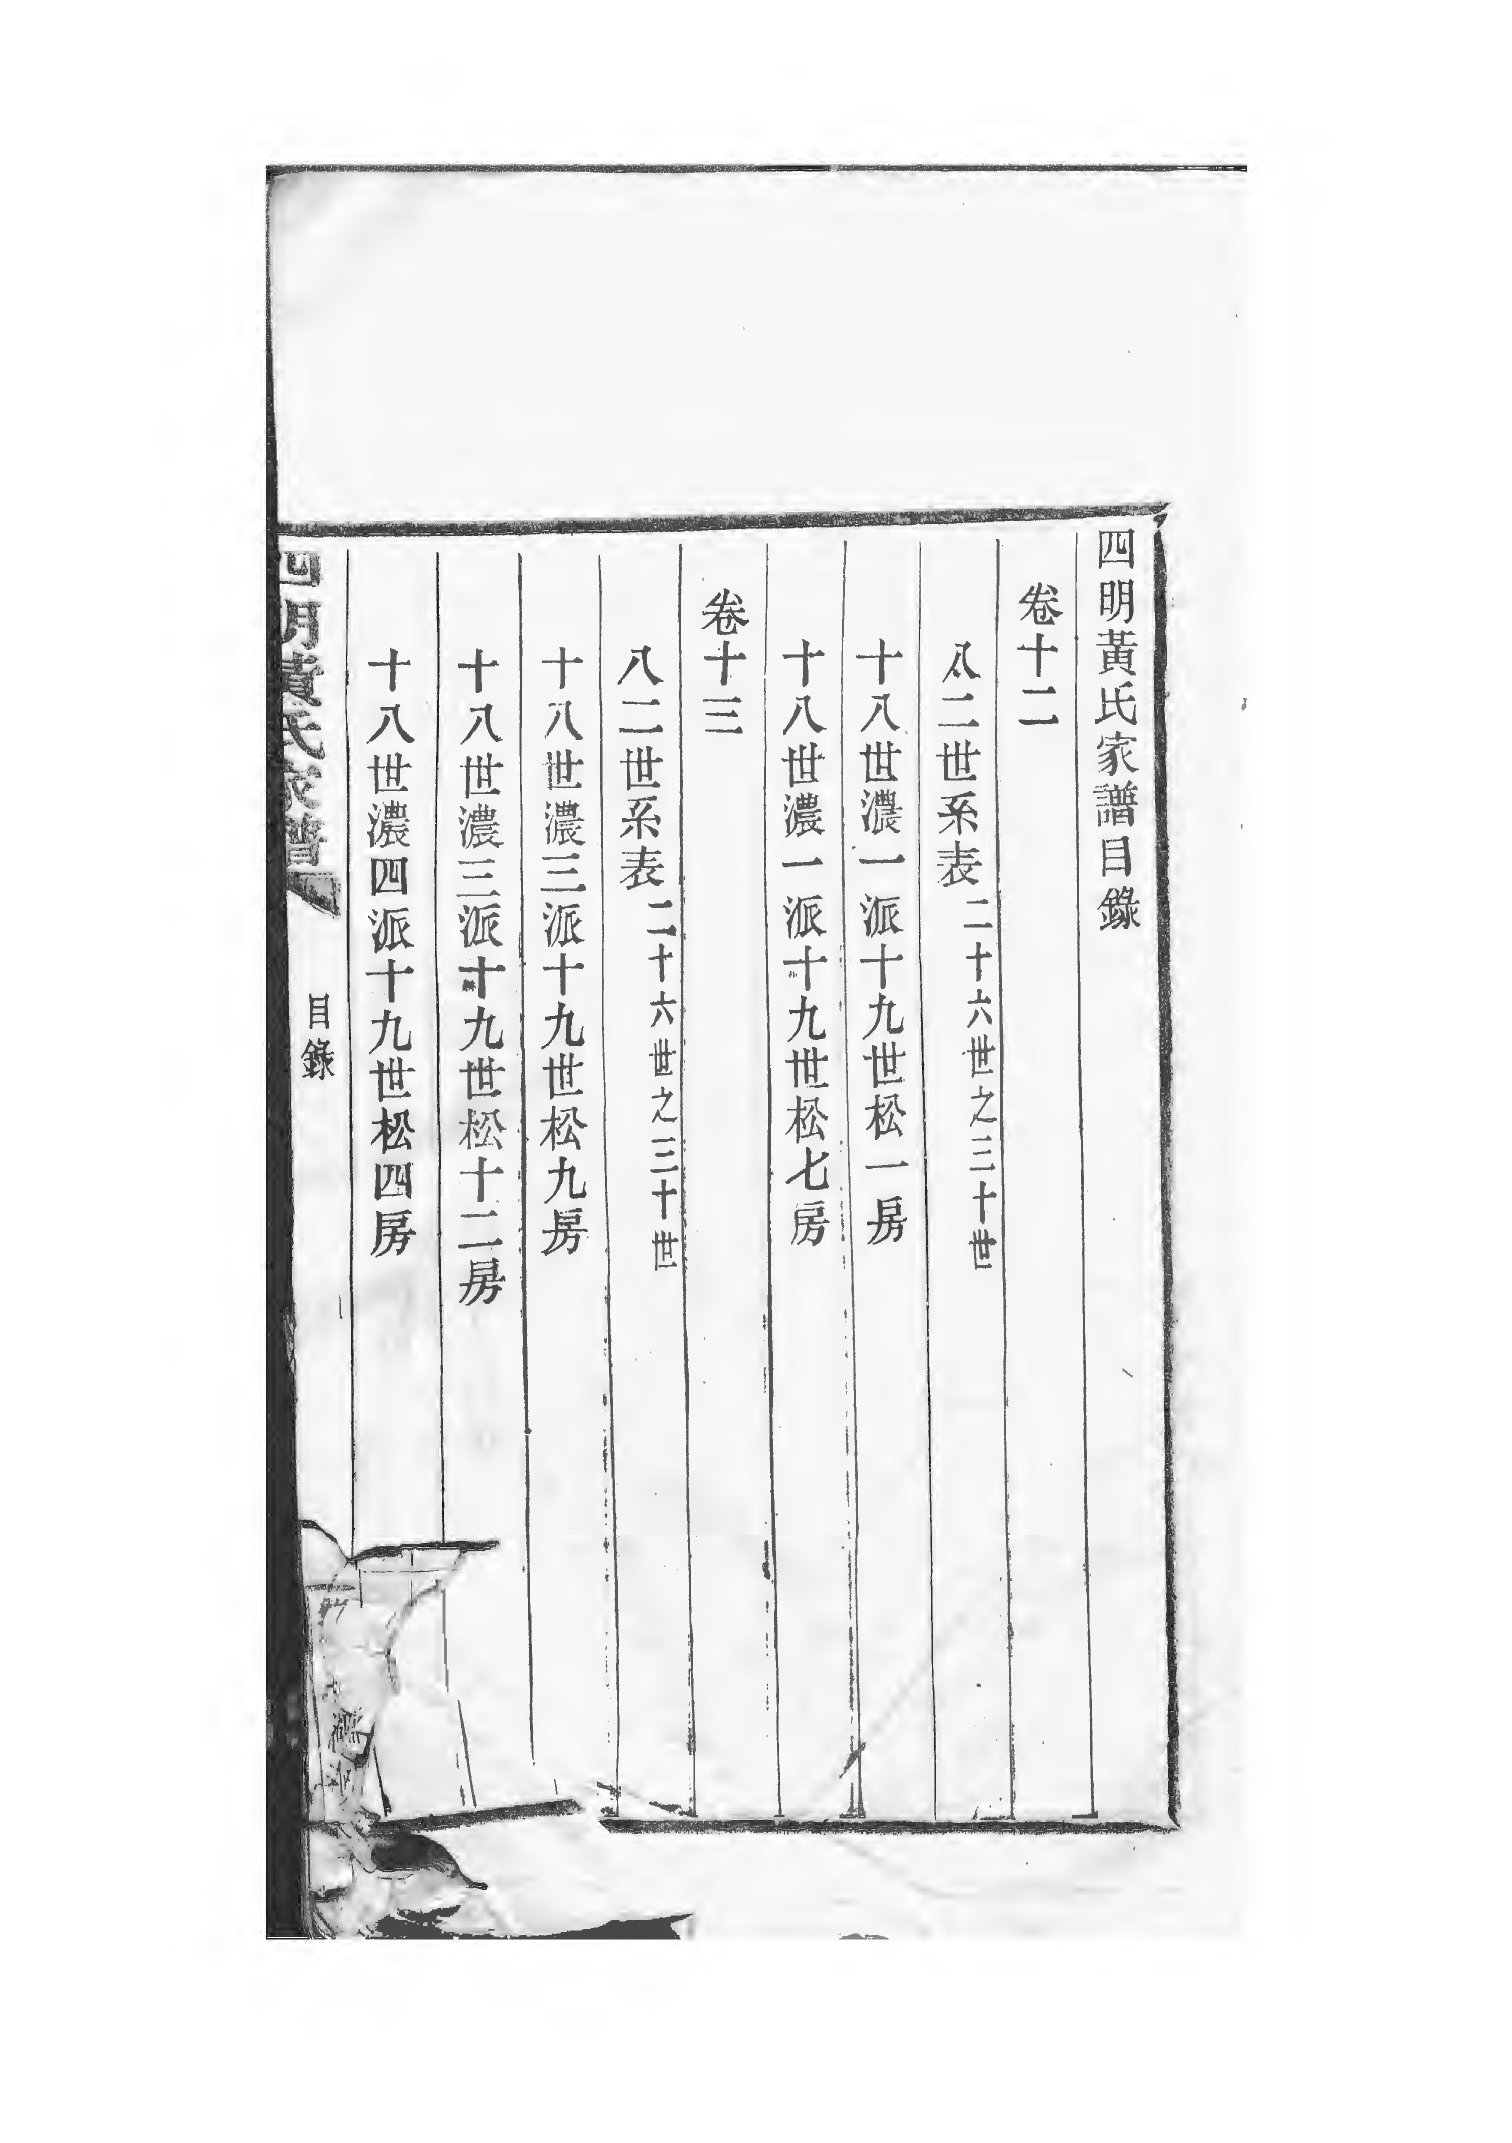 四明黃氏家譜目錄
卷十二
八二世系表二十六世之三十世
十八世濃一派十九世松一房
十八世濃一派十九世松七房
卷十三
八二世系表二十六世之三十世
十八世濃三派十九世松九房
十八世濃三派十九世松十二房
十八世濃四派十九世松四房
四明黃氏家譜
目錄